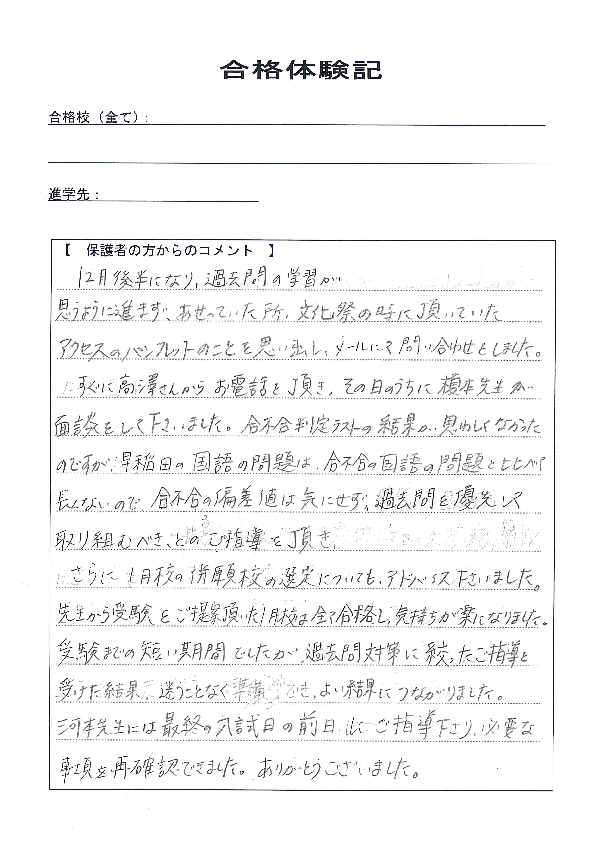 合格体験記
合格校（全て）:
進学先：
【　保護者の方からのコメント　】
12月後半になり、過去問の学習が
思うように進まず、あせっていた所、文化祭の時に頂いていた
アクセスのパンフレットのことを思い出し、メールにて問い合わせをしました。
すぐに高澤さんからお電話を頂き、その日のうちに榎本先生が
面談をして下さいました。合不合判定テストの結果が思わしくなかった
のですが、早稲田の国語の問題は、合不合の国語の問題と比べて
長くないので、合不合の偏差値は気にせず、過去問を優先して
取り組むべき、とのご指導を頂き
さらに1月校の併願校の選定についても、アドバイス下さいました。
先生から受験をご提案頂いた1月校は全て合格し、気持ちが楽になりました。
受験までの短い期間でしたが、過去問対策に絞ったご指導を
受けた結果、迷うことなく準備でき、よい結果につながりました。
河本先生には最終の入試日の前日にご指導下さり、必要な
事項を再確認できました。ありがとうございました。